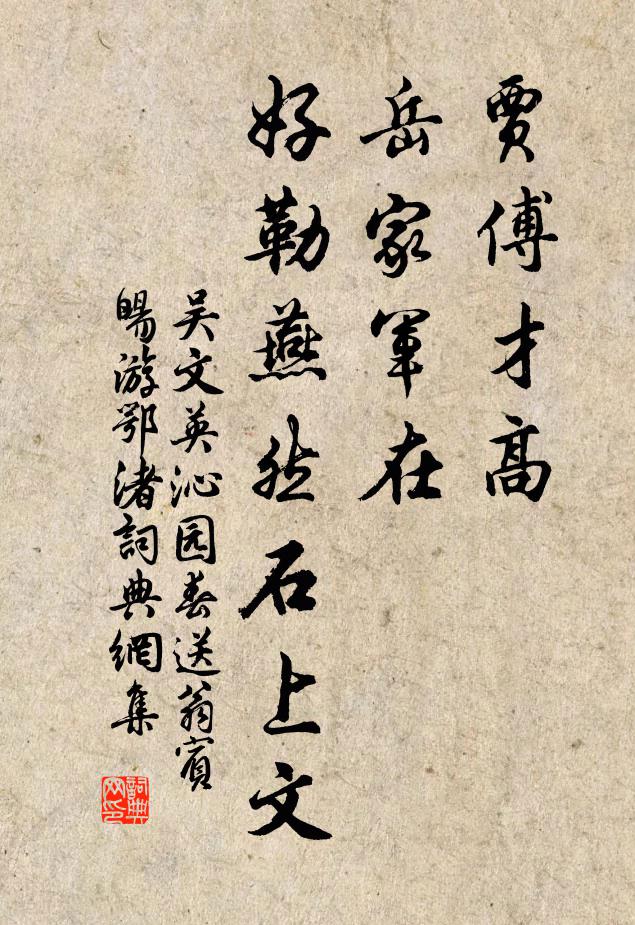 賈傅才高
岳家軍在
好勒燕然石上文
吴文英沁园春送翁賓
暘游鄂渚詞典網集
詞典
网印